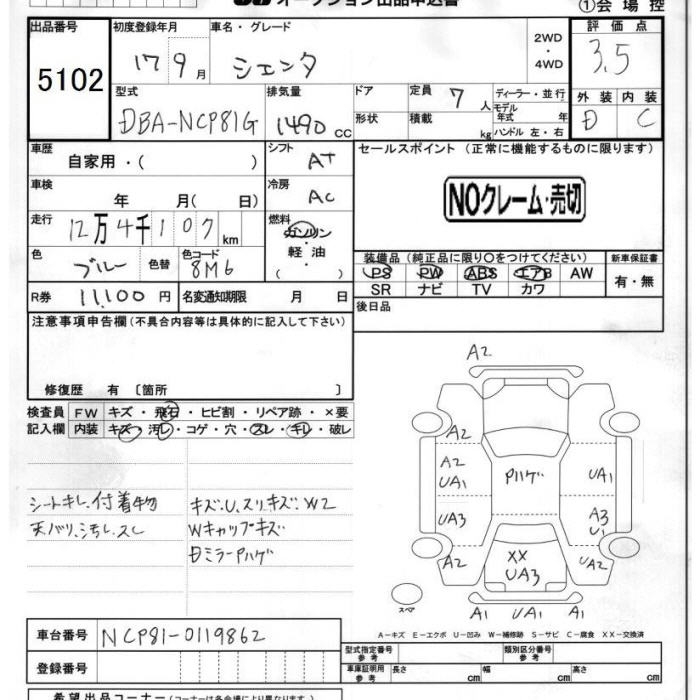 オークション出品申込書
①会場控
出品番号
5102
初度登録年月
17 9月
車名・グレード
シエンタ
2WD
・
4WD
評価点
3.5
型式
DBA-NCP81G
排気量
1490 cc
ドア
形状
定員 7 人
積載 kg
ディーラー・並行
モデル年式 年
ハンドル 左・右
外装 内装
D C
車歴
自家用・( )
シフト
AT
セールスポイント (正常に機能するものに限ります)
NOクレーム・売切
車検
年 月( 日)
冷房
AC
走行
12万4千107km
燃料
ガソリン
軽油
( ・ )
色
ブルー
色替
色コード
8M6
装備品 (純正品に限り○をつけてください)
PS PW ABS エアB AW
SR ナビ TV カワ
新車保証書
有・無
R券 11,100円
名変通知期限 月 日
後日品
注意事項申告欄(不具合内容等は具体的に記入して下さい)
修復歴 有 [箇所 ]
検査員記入欄
FW キズ・飛石・ヒビ割・リペア跡・×要
内装 キズ・汚レ・コゲ・穴・スレ・キレ・破レ
シートキレ.付着物
天バリ.汚レ.スレ
キズ.U.スリキズ.W2
Wキャップキズ
Dミラーハゲ
A2
A2
A2
UA1
UA3
A2
Pハゲ
UA1
A3
U1
UA2
XX
UA3
A1 UA1 A1
スペア
A-キズ E-エクボ U-凹み W-補修跡 S-サビ C-腐食 XX-交換済
車台番号 NCP81-0119862
登録番号
型式指定番号参考
類別区分番号参考
車庫証明用参考 長さ cm 幅 cm 高さ cm
希望出品コーナー(コーナーは各会場により異なります)